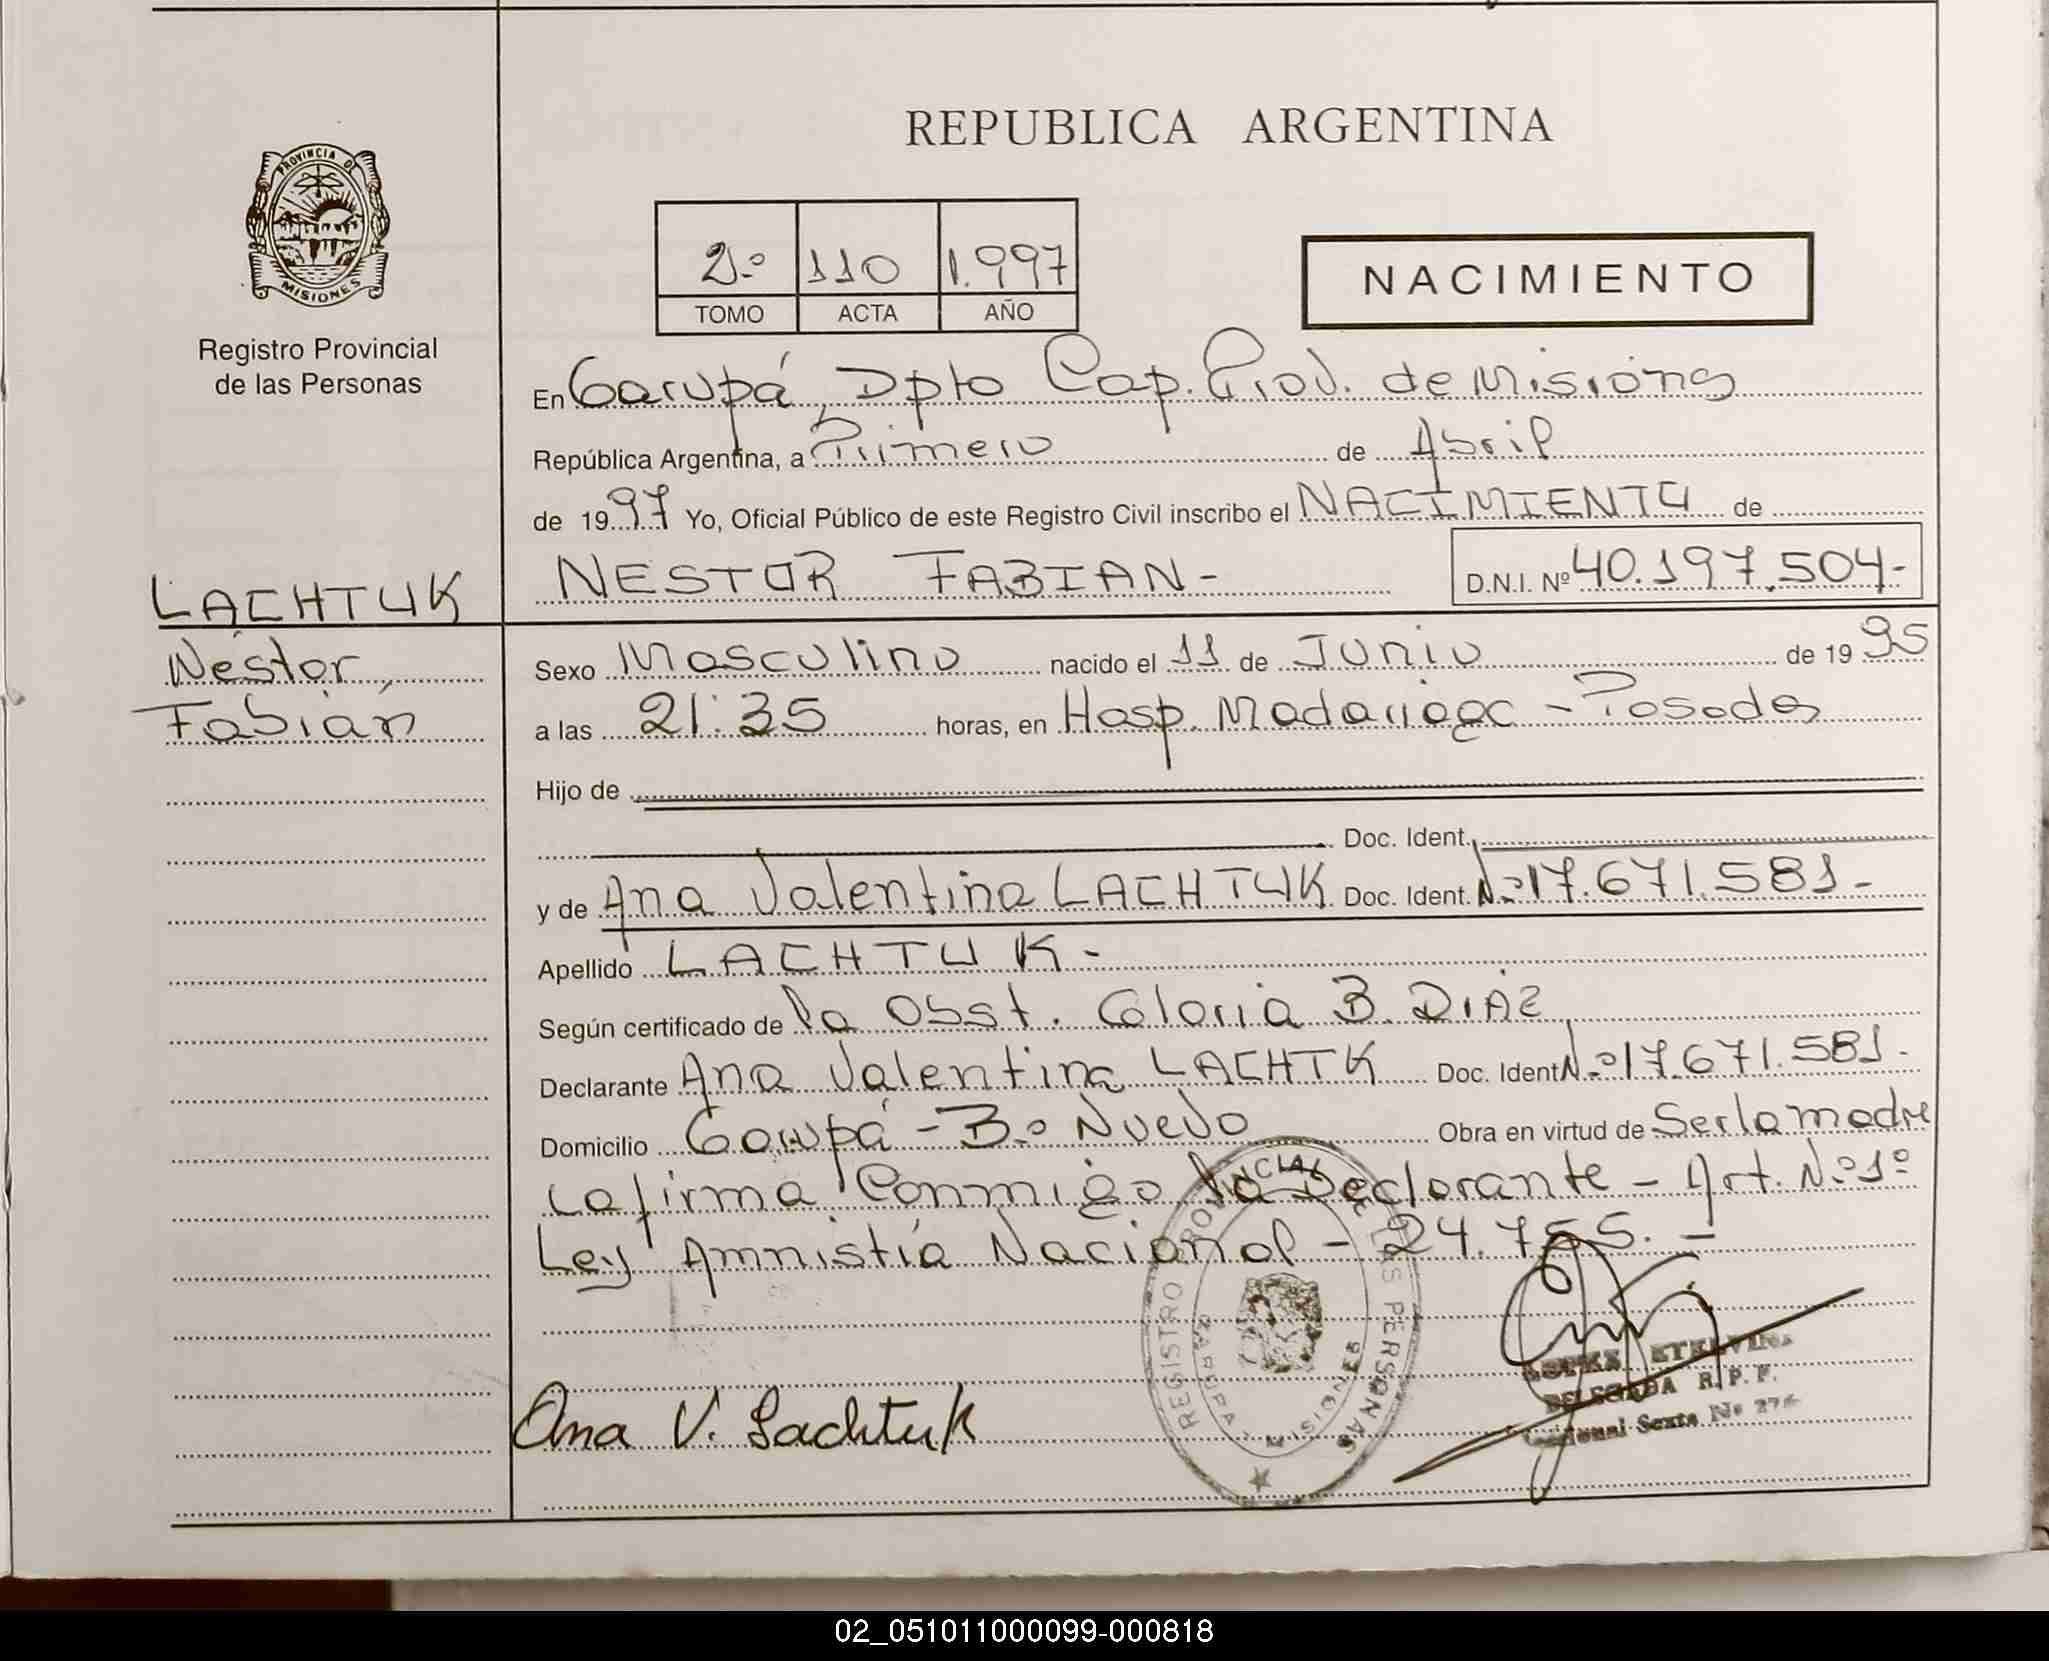 REPUBLICA ARGENTINA
PROVINCIA DE
MISIONES
Registro Provincial
de las Personas
2.º 110 1.997
TOMO ACTA AÑO
NACIMIENTO
En Garupá, Dpto Cap. Prov. de Misiones
República Argentina, a Primero de Abril
de 1997 Yo, Oficial Público de este Registro Civil inscribo el NACIMIENTO de
NESTOR FABIAN- D.N.I. Nº 40.197.504-
LACHTUK
Néstor
Fabián
Sexo Masculino nacido el 11 de Junio de 1995
a las 21:35 horas, en Hosp. Madariaga - Posadas
Hijo de
Doc. Ident.
y de Ana Valentina LACHTUK Doc. Ident. N.º 17.671.581-
Apellido LACHTUK-
Según certificado de la Obst. Gloria B. DIAZ
Declarante Ana Valentina LACHTK Doc. Ident N.º 17.671.581.
Domicilio Garupá - B.º Nuevo Obra en virtud de Ser la madre
La firma Conmigo la Declarante - Art. N.º 1º
Ley Amnistía Nacional - 24.755.-
REGISTRO PROVINCIAL DE LAS PERSONAS
GARUPA MISIONES
Ana V. Lachtuk
ETELVINA
DELEGADA R.P.P.
Sexta Nº
02_051011000099-000818